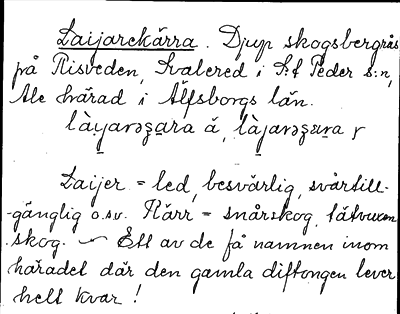 Laijarekärra. Djup skogsbergrås
på Risveden, Svalered i S:t Peder s:n,
Ale härad i Älfsborgs län.
Laijer = led, besvärlig, svårtill-
-gänglig o.sv. Kärr = snårskog, tätvuxen
skog. ~ Ett av de få namnen inom
häradet där den gamla diftongen lever
helt kvar!